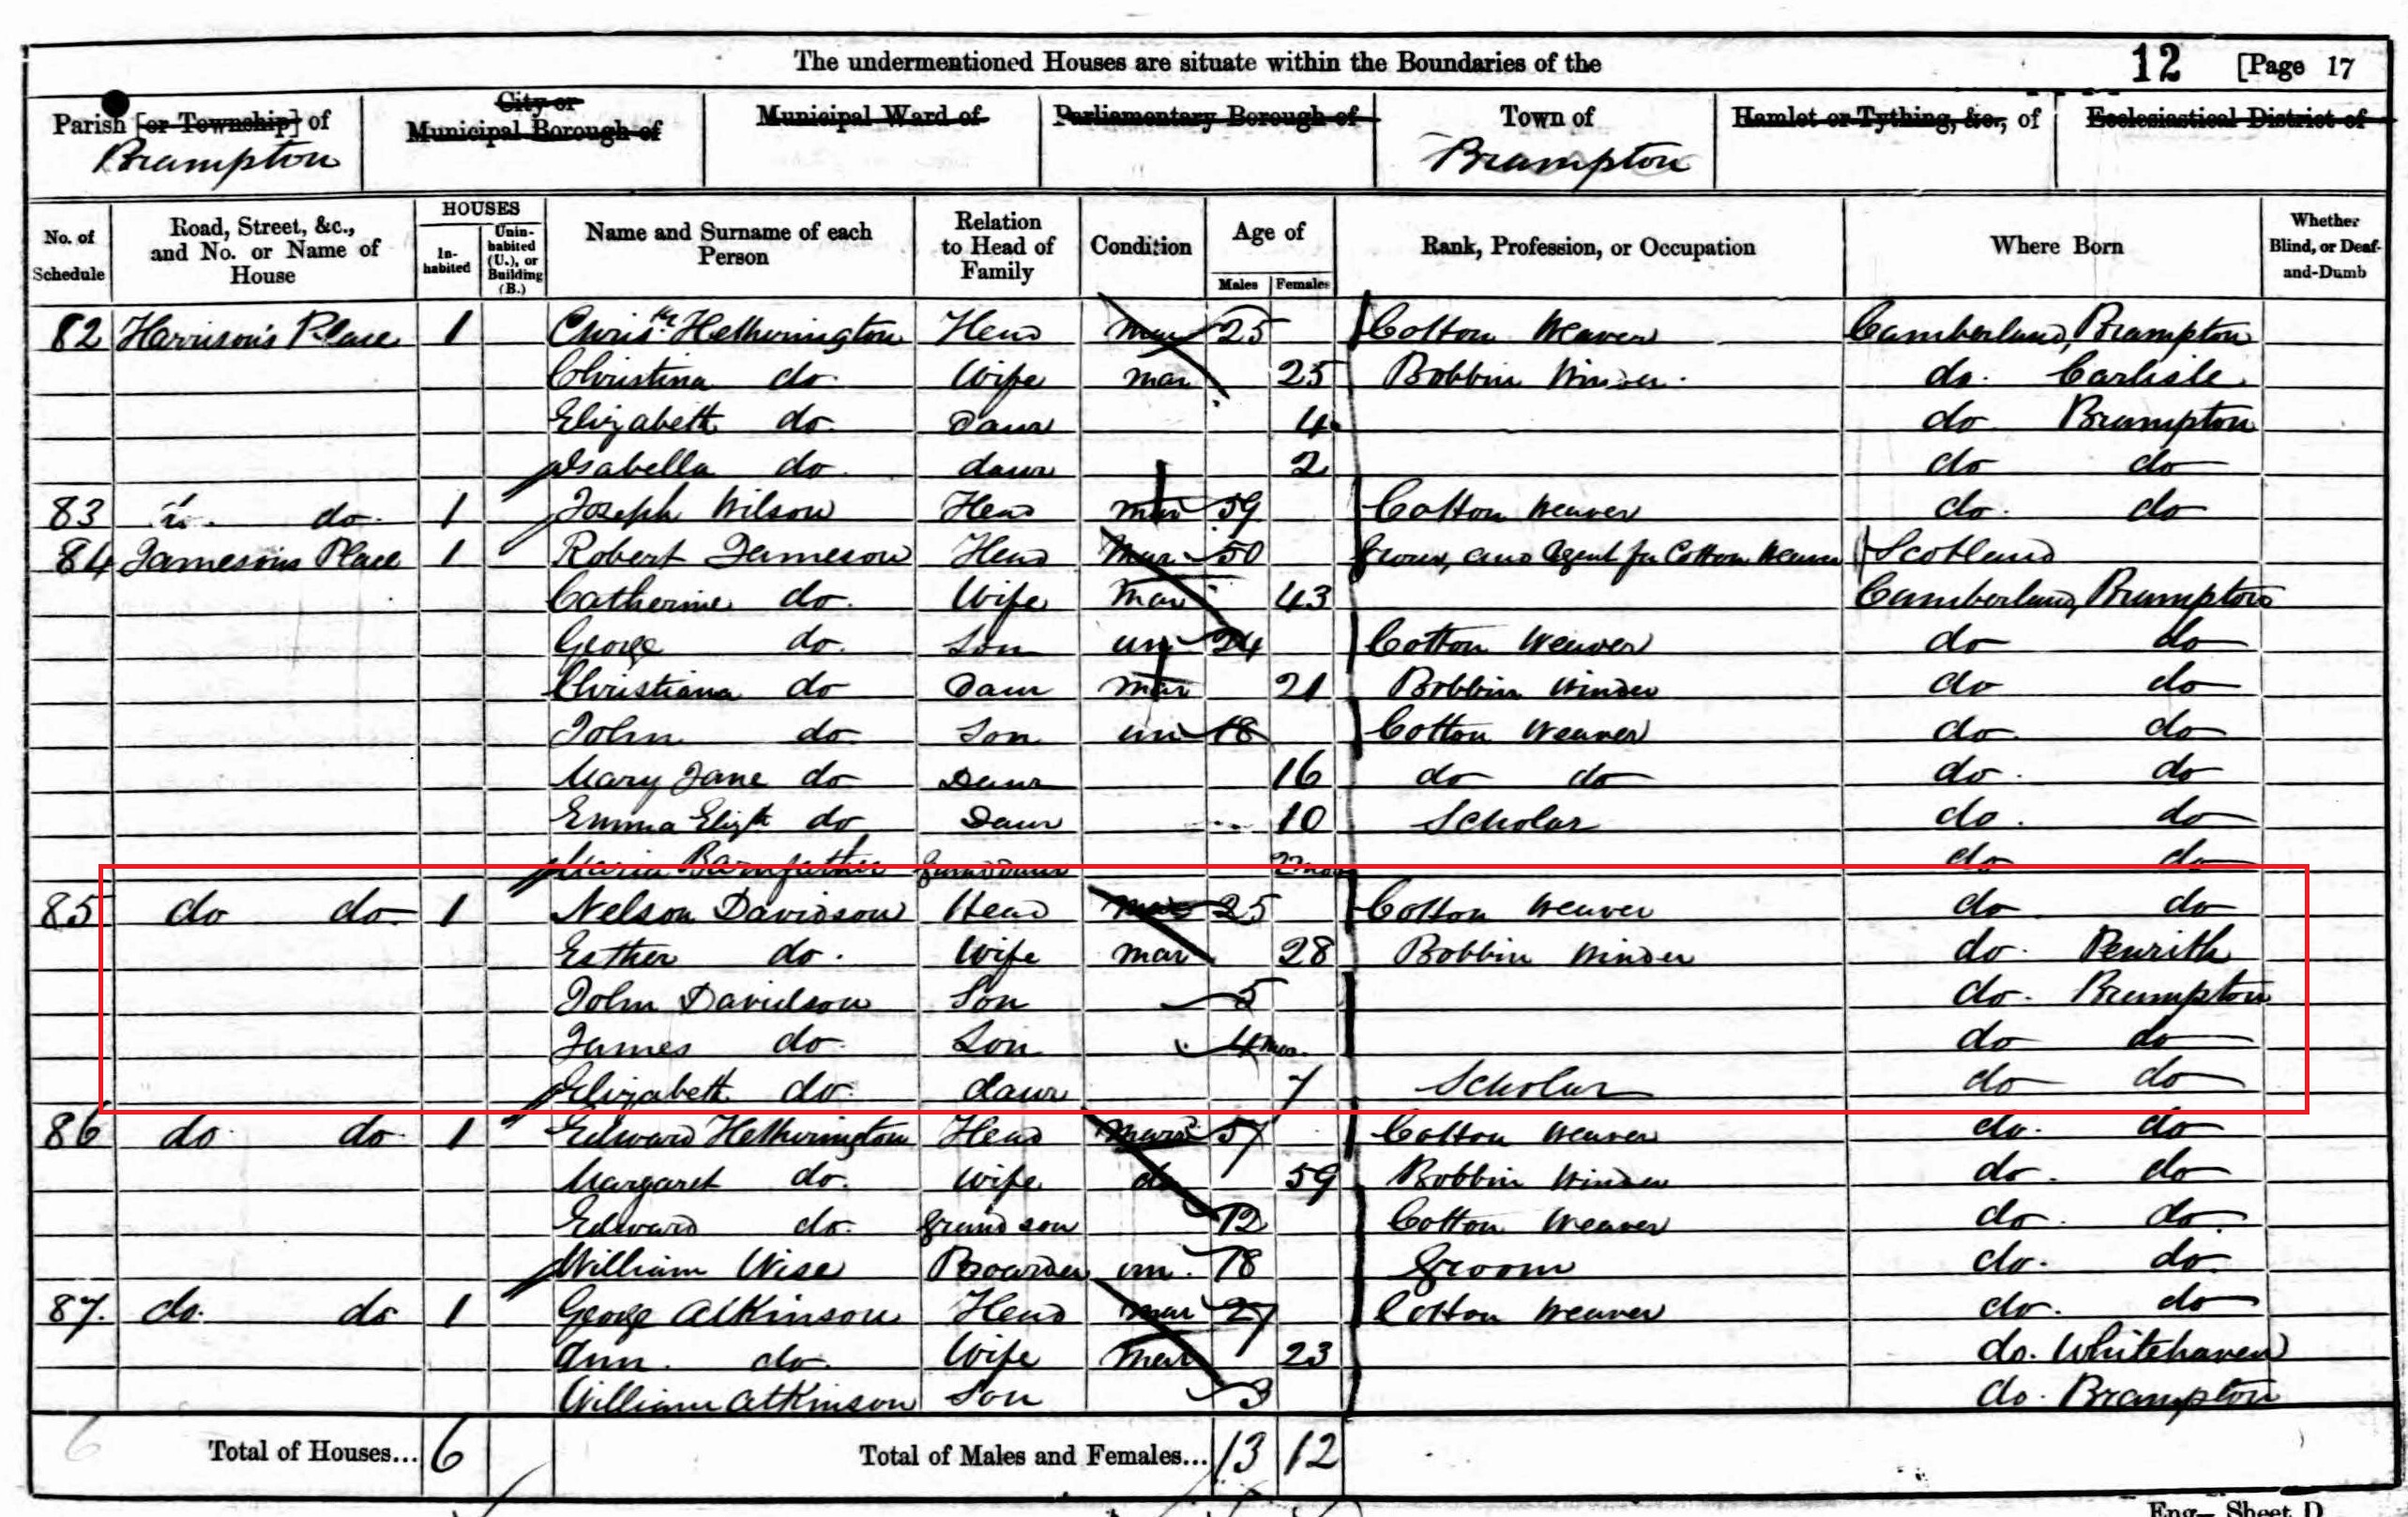 The undermentioned Houses are situate within the Boundaries of the 12 [Page 17
Parish [or Township] of City or Municipal Borough of Municipal Ward of Parliamentary Borough of Town of Hamlet or Tything, &c., of Ecclesiastical District of
Brampton Brampton
No. of Schedule Road, Street, &c., and No. or Name of House HOUSES Inhabited Uninhabited (U.), or Building (B.) Name and Surname of each Person Relation to Head of Family Condition Age of Males Females Rank, Profession, or Occupation Where Born Whether Blind, or Deaf-and-Dumb
82 Harrison's Place 1 Christr Hetherington Head mar 25 Cotton Weaver Cumberland, Brampton
Christina do. Wife mar 25 Bobbin Winder. do. Carlisle
Elizabeth do. Daur 4 do Brampton
Isabella do. daur 2 do do
83 do. 1 Joseph Wilson Head 59 Cotton Weaver do. do
84 Jameson's Place 1 Robert Jameson Head Mar 50 Grocer, and Agent for Cotton Weaver Scotland
Catherine do. Wife Mar 43 Cumberland, Brampton
George do. Son un 24 Cotton Weaver do do
Christiana do Daur mar 21 Bobbin Winder do do
John do Son un 18 Cotton Weaver do. do
Mary Jane do Daur 16 do do do. do
Emma Elizth do Daur 10 Scholar do. do
Maria Barnfather Granddaur 2 mos do do
85 do do 1 Nelson Davidson Head mar 25 Cotton Weaver do do
Esther do. Wife mar 28 Bobbin Winder do. Penrith
John Davidson Son 5 do. Brampton
James do. Son 4 mos. do do
Elizabeth do. daur 7 Scholar do do
86 do. do. 1 Edward Hetherington Head mar 57 Cotton Weaver do. do
Margaret do. Wife do 59 Bobbin Winder do. do
Edward do. Grandson 12 Cotton Weaver do. do.
William Wise Boarder un. 18 Groom do. do.
87. do. do 1 George Atkinson Head mar 27 Cotton Weaver do. do
Ann. do. Wife mar 23 do. Whitehaven
William Atkinson Son 3 do. Brampton
6 Total of Houses... 6 Total of Males and Females... 13 12
Eng.— Sheet D.